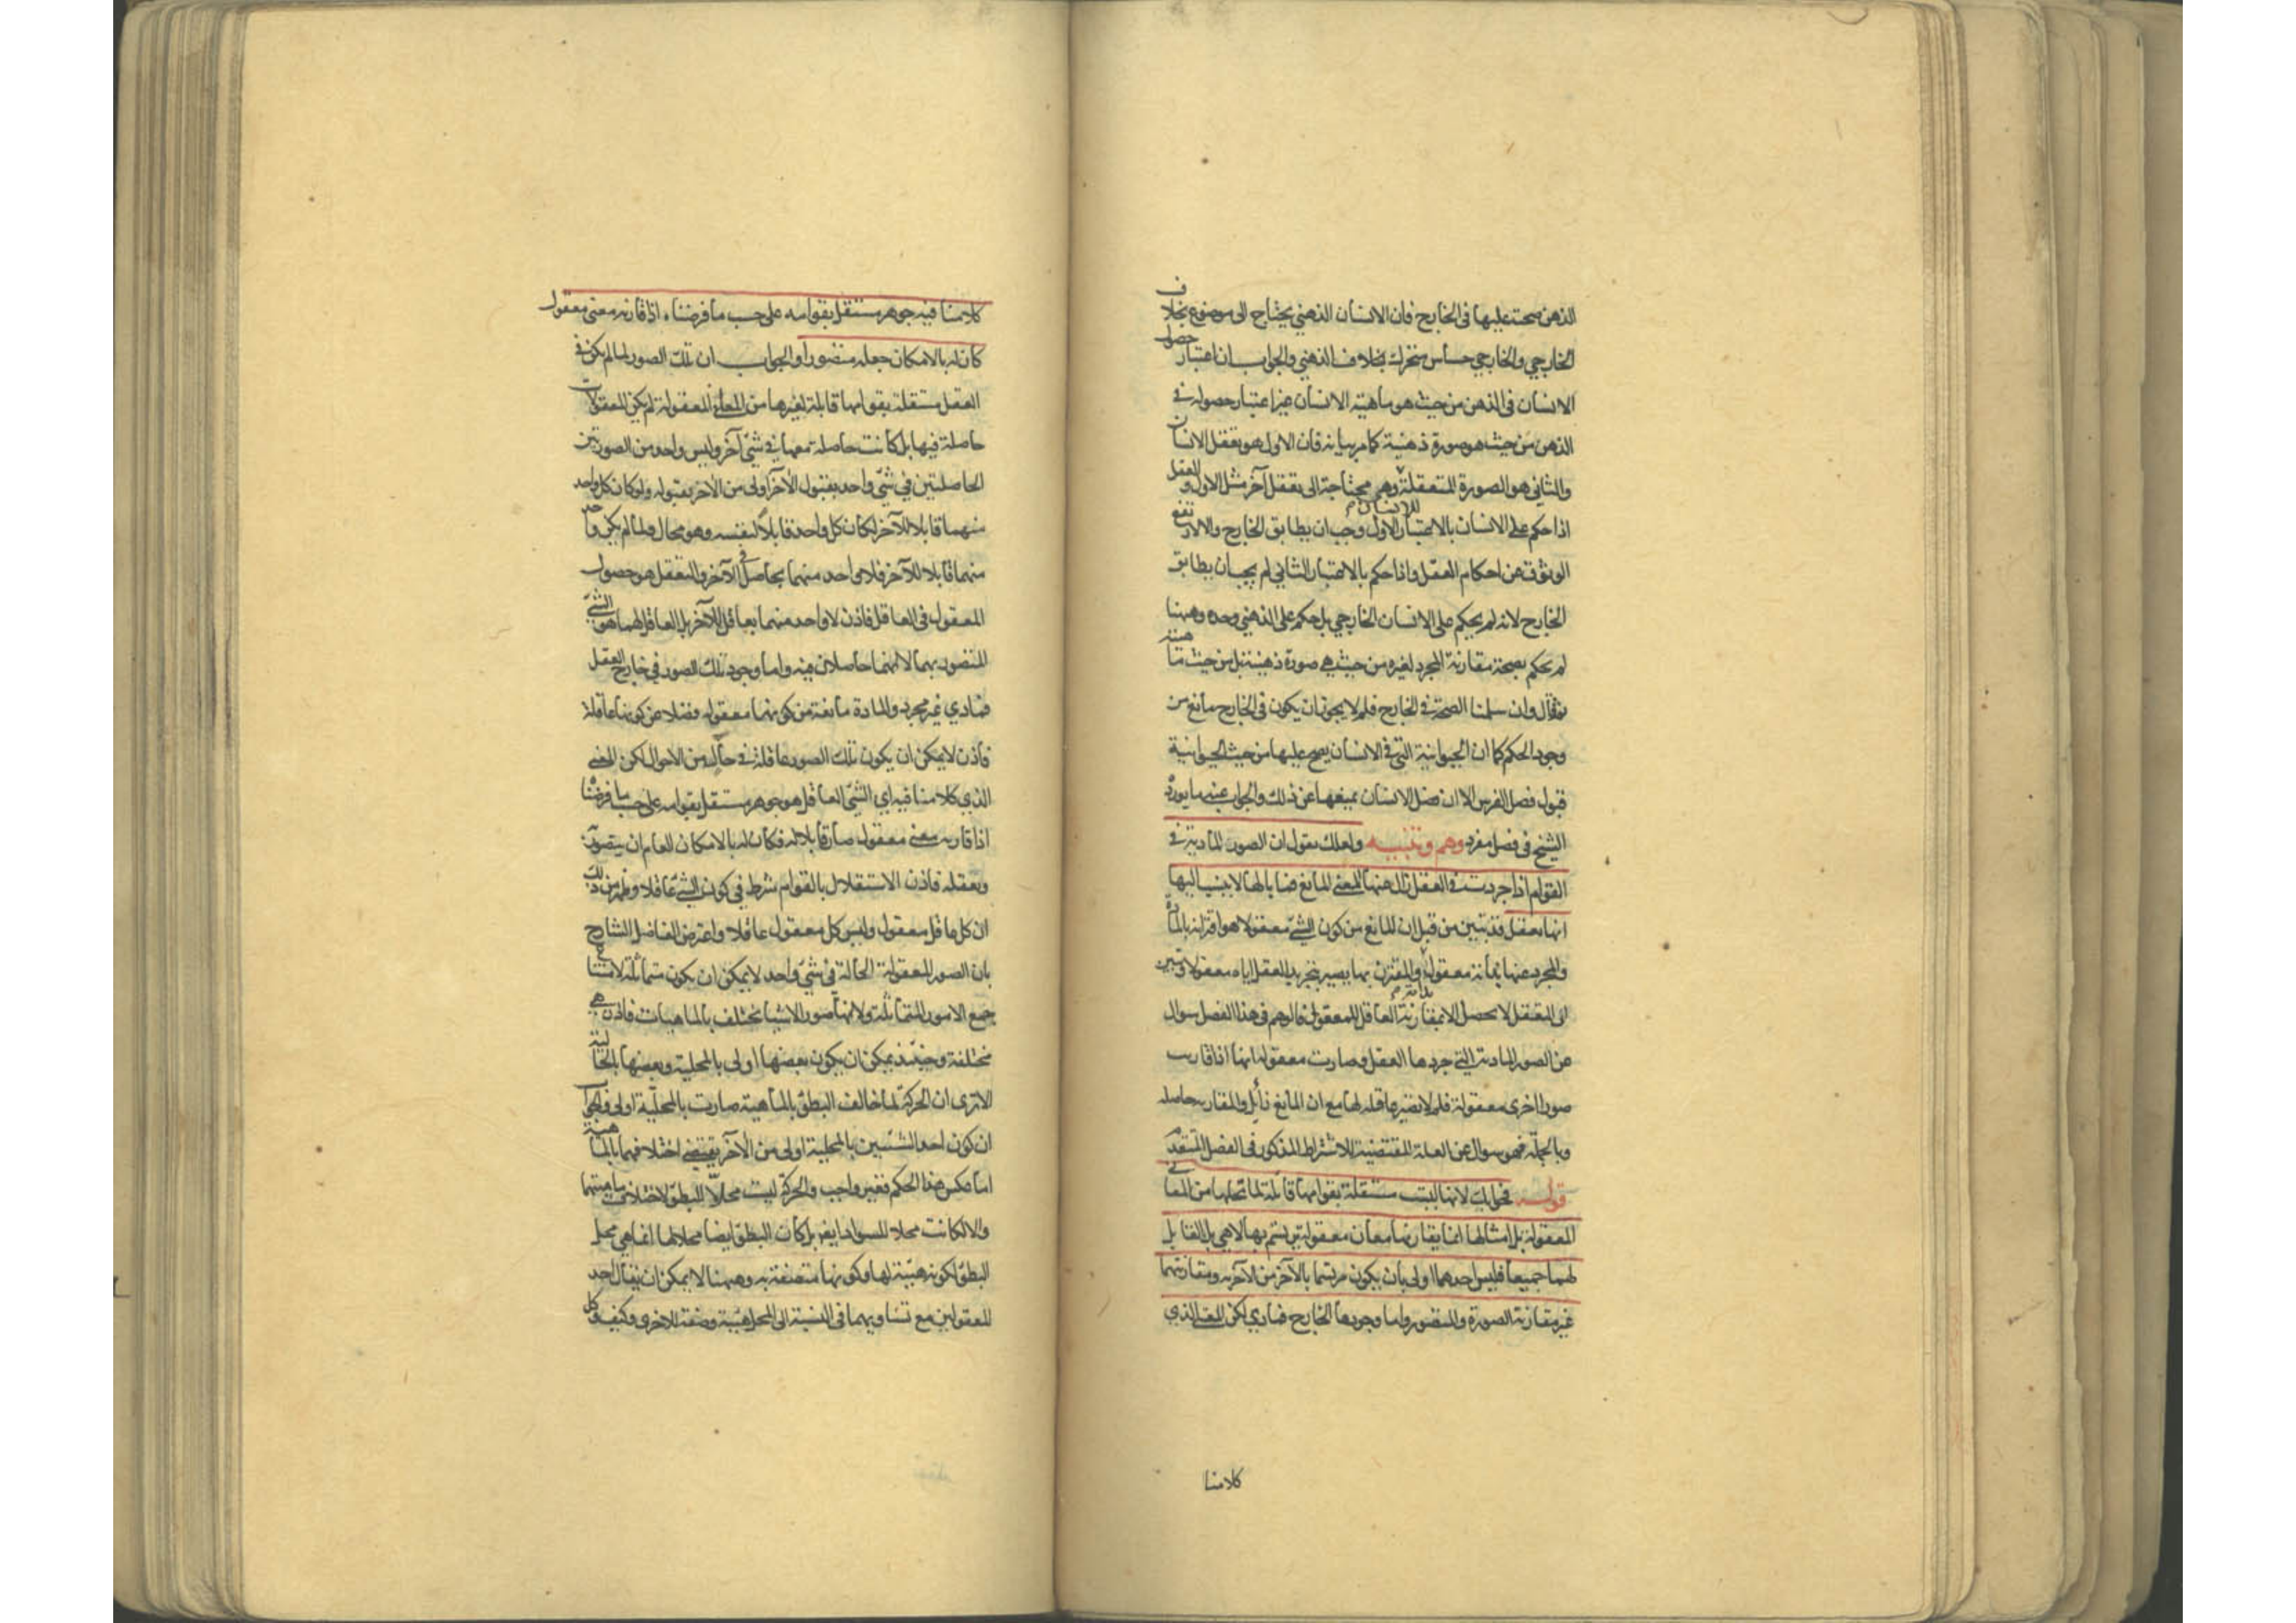 الذهن صحت عليها فى الخارج فان الانسان الذهني يحتاج الى موضوع بخلاف
الخارجي والخارجي حساس متحرك بخلاف الذهني والجواب ان اعتبار حصول
الانسان فى الذهن من حيث هو ماهية الانسان غير اعتبار حصوله فى
الذهن من حيث هو صورة ذهنية كما مر بيانه فان الاول هو تعقل الانسان
والثاني هو الصورة المتعقلة للانسان وهي محتاجة الى تعقل آخر مثل الاول والعقل
اذا حكم على الانسان بالاعتبار الاول وجب ان يطابق الخارج والا لارتفع
الوثوق عن احكام العقل واذا حكم بالاعتبار الثاني لم يجب ان يطابق
الخارج لانه لم يحكم على الانسان الخارجي بل حكم على الذهني وحده وههنا
لم يحكم بصحة مقارنة المجرد لغيره من حيث هي صورة ذهنية بل من حيث ماهيته
ثم قال وان سلمنا الصحة فى الخارج فلم لا يجوز ان يكون فى الخارج مانع من
وجود الحكم كما ان الحيوانية التي فى الانسان يصح عليها من حيث الحيوانية
قبول فصل الفرس الا ان فصل الانسان يمنعها عن ذلك والجواب عنه ما يورده
الشيخ فى فصل مفرد وهم وتنبيه ولعلك تقول ان الصور المادية فى
القوام اذا جردت فى العقل زال عنها المعنى المانع فما بالها لا ينسب اليها
انها تعقل قد تبين من قبل ان المانع من كون الشئ معقولا هو اقترانه بالمادة
والمجرد عنها بذاته معقول بذاته والمقترن بها يصير بتجريد العقل اياه معقولا وتبين
ان التعقل لا يحصل الا بمقارنة العاقل للمعقول فالوهم فى هذا الفصل سوال
عن الصور المادية التي جردها العقل وصارت معقولة انها اذا قارنت
صورا اخرى معقولة فلم لا تصير عاقلة لها مع ان المانع زائل والمقارنة حاصله
وبالجملة فهو سوال عن العلة المقتضية للاشتراط المذكور فى الفصل المتقدم
قوله فجوابك لانها ليست مستقلة بقوامها قابلة لما يحلها من المعاني
المعقولة بل امثالها انما يقارنها معان معقولة يرتسم بها لا هي بل القابل
لهما جميعا فليس احدهما اولى بان يكون مرتسما بالآخر من الآخر به ومقارنتهما
غير مقارنة الصورة والمتصور واما وجودها الخارج فمادي لكن المعنى الذي
كلامنا
كلامنا فيه جوهر مستقل بقوامه على حسب ما فرضناه اذا قارنه معنى معقول
كان له بالامكان جعله متصورا والجواب ان تلك الصور لما لم يكن فى
العقل مستقلة بقوامها قابلة لغيرها من المعاني المعقولة لم يكن المعقولات
حاصلة فيها بل كانت حاصلة معها فى شئ آخر وليس واحد من الصورتين
الحاصلتين في شئ واحد بقبول الآخر اولى من الآخر بقبوله ولو كان كل واحد
منهما قابلا للآخر لكان كل واحد قابلا لنفسه وهو محال ولما لم يكن واحد
منهما قابلا للآخر فلا واحد منهما بحاصل فى الآخر والتعقل هو حصول
المعقول فى العاقل فاذن لا واحد منهما بعاقل للآخر بل العاقل لهما هو الشئ
المتصور بهما لانهما حاصلان فيه واما وجود تلك الصور في خارج العقل
فمادي غير مجرد والمادة مانعة من كونها معقوله فضلا عن كونها عاقلة
فاذن لا يمكن ان يكون تلك الصور عاقلة فى حال من الاحوال لكن المعنى
الذي كلامنا فيه اي الشئ العاقل هو جوهر مستقل بقوامه على حسب ما فرضناه
اذا قارنه معنى معقول صار قابلا له فكان له بالامكان العام ان يتصوره
ويعقله فاذن الاستقلال بالقوام شرط في كون الشئ عاقلا وظهر من ذلك
ان كل عاقل معقول وليس كل معقول عاقلا واعترض الفاضل الشارح
بان الصور المعقولة الحالة فى شئ واحد لا يمكن ان يكون متماثلة لامتناع
جمع الامور المتماثلة ولانها صور الاشياء تختلف بالماهيات فاذن هي
مختلفة وحينئذ يمكن ان يكون بعضها اولى بالمحلية وبعضها بالحالية
الا ترى ان الحركة لما خالف البطؤ بالماهية صارت بالمحلية اولى والجواب
ان كون احد الشيئين بالمحلية اولى من الآخر يقتضي اختلافهما بالماهية
اما عكس هذا الحكم فغير واجب والحركة ليست محلا للبطؤ لاختلاف ماهيتهما
والا لكانت محلا للسواد ايضا بل كان البطؤ ايضا محلا لها انما هي محل
البطؤ لكونه هيئة لها وكونها متصفة به وههنا لا يمكن ان يقال احد
المعقولين مع تساويهما فى النسبة الى المحل هيئة وصفة للاخرى وكيف وكل